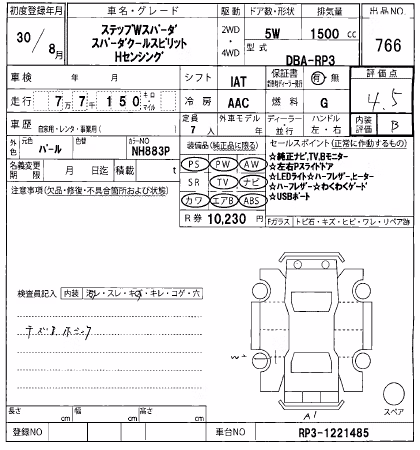 初度登録年月
車名・グレード
駆動
ドア数・形状
排気量
出品NO
30
8月
ステップWスパーダ
スパーダクールスピリット
Hセンシング
2WD
・
4WD
5W
1500 cc
766
型式
DBA-RP3
車検 年 月
シフト
IAT
保証書
有 無
評価点
4.5
走行
7万7千150
キロ・マイル
冷房
AAC
燃料
G
車歴
自家用・レンタ・事業用( )
定員
7人
外車モデル
年
ディーラー・並行
ハンドル
左・右
内装評価
B
外色
元色
パール
色替
カラーNO
NH883P
装備品(純正品に限る)
セールスポイント(正常に作動するもの)
PS PW AW
SR TV ナビ
カワ エアB ABS
☆純正ナビ,TV,Bモニター
☆左右Pスライドドア
☆LEDライト☆ハーフレザー,ヒーター
☆ハーフレザー☆わくわくゲード
☆USBポート
名義変更期限
月 日迄
積載
t
注意事項(欠品・修復・不具合箇所および状態)
R券
10,230円
Fガラス
トビ石・キズ・ヒビ・ワレ・リペア跡
検査員記入
内装
汚レ・スレ・キズ・キレ・コゲ・穴
W1
A1
スペア
長さ cm
幅 cm
高さ cm
登録NO
車台NO
RP3-1221485